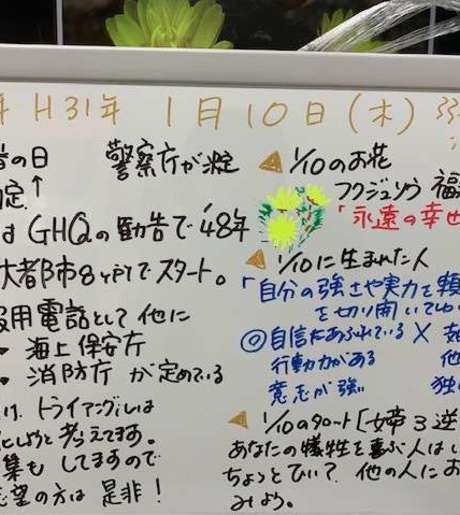 年 H31年 1月10日(木)
の日 警察庁が決定
定↑
GHQの勧告で'48年
大都市8ヶ所でスタート。
用電話として他に
・海上保安庁
・消防庁 が定めている
け、トライアングルは
にしようと考えてます。
集も してますので
希望の方は 是非!
▲ 1/10のお花
フクジュソウ 福
「永遠の幸せ
▲ 1/10に生まれた人
「自分の強さや実力を頼
を切り開いて
◎自信にあふれている ×
行動力がある 他
意志が強 独
▲ 1/10のタロート[女帝 3 逆
あなたの犠牲を喜ぶ人はい
ちょっとひいて、他の人にお
みよう。